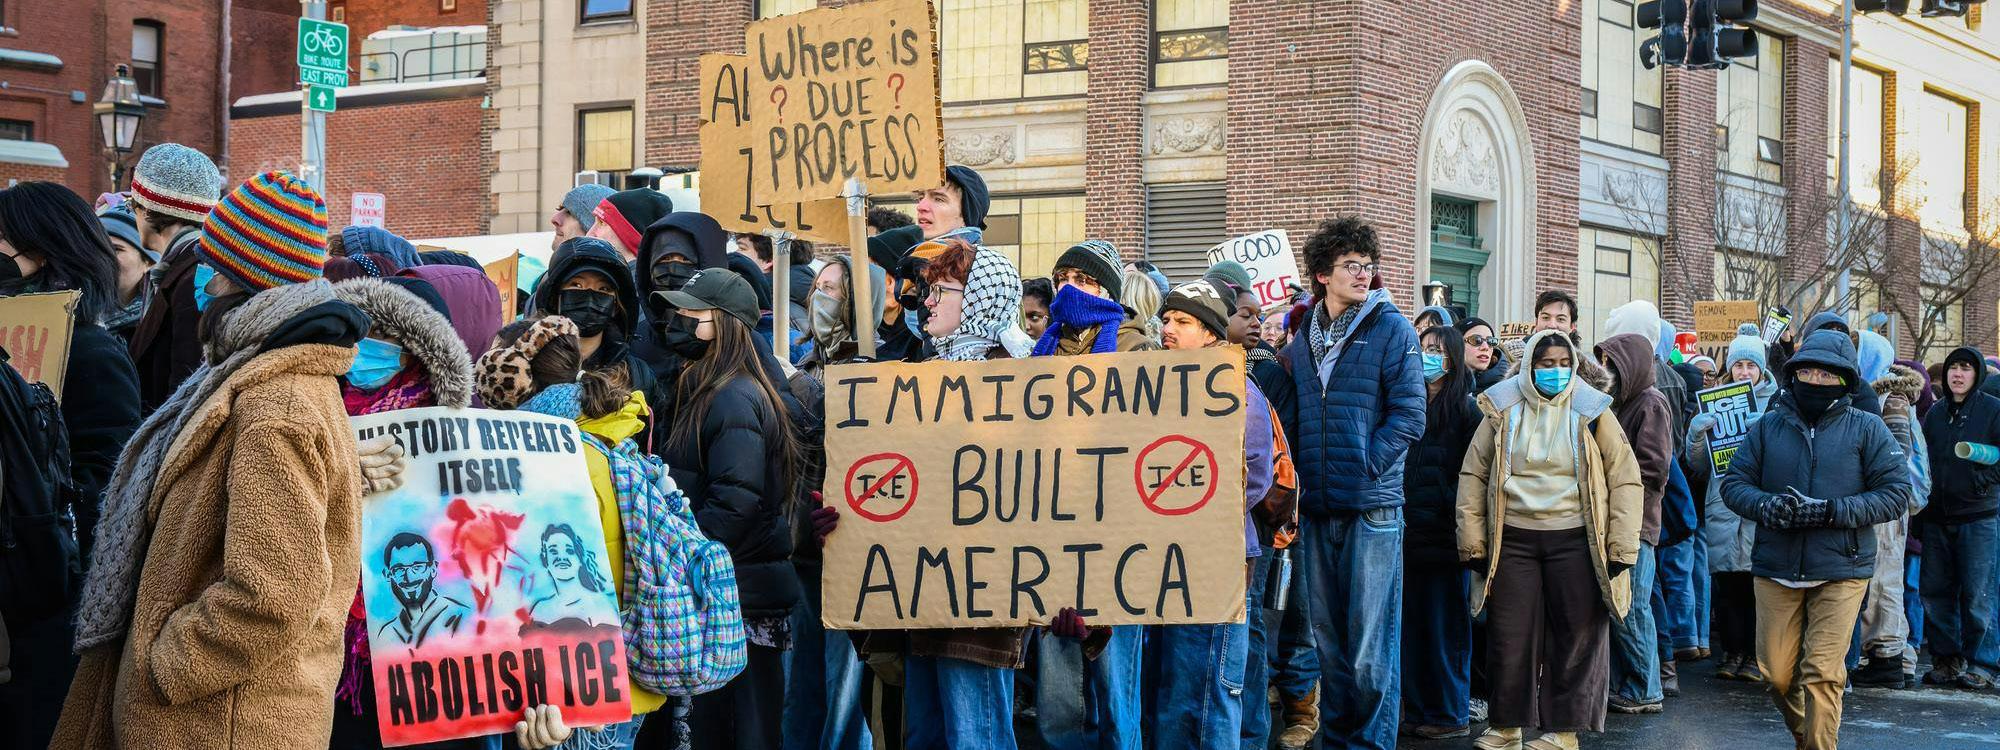 BIKE ROUTE
EAST PROV
NO
PARKING
ANY
Where is
? DUE ?
PROCESS
ICE
HISTORY REPEATS
ITSELF
ABOLISH ICE
IMMIGRANTS
ICE BUILT ICE
AMERICA
GOOD
ICE
I like
REMOVE
FROM
STAND WITH MINNESOTA
ICE
OUT